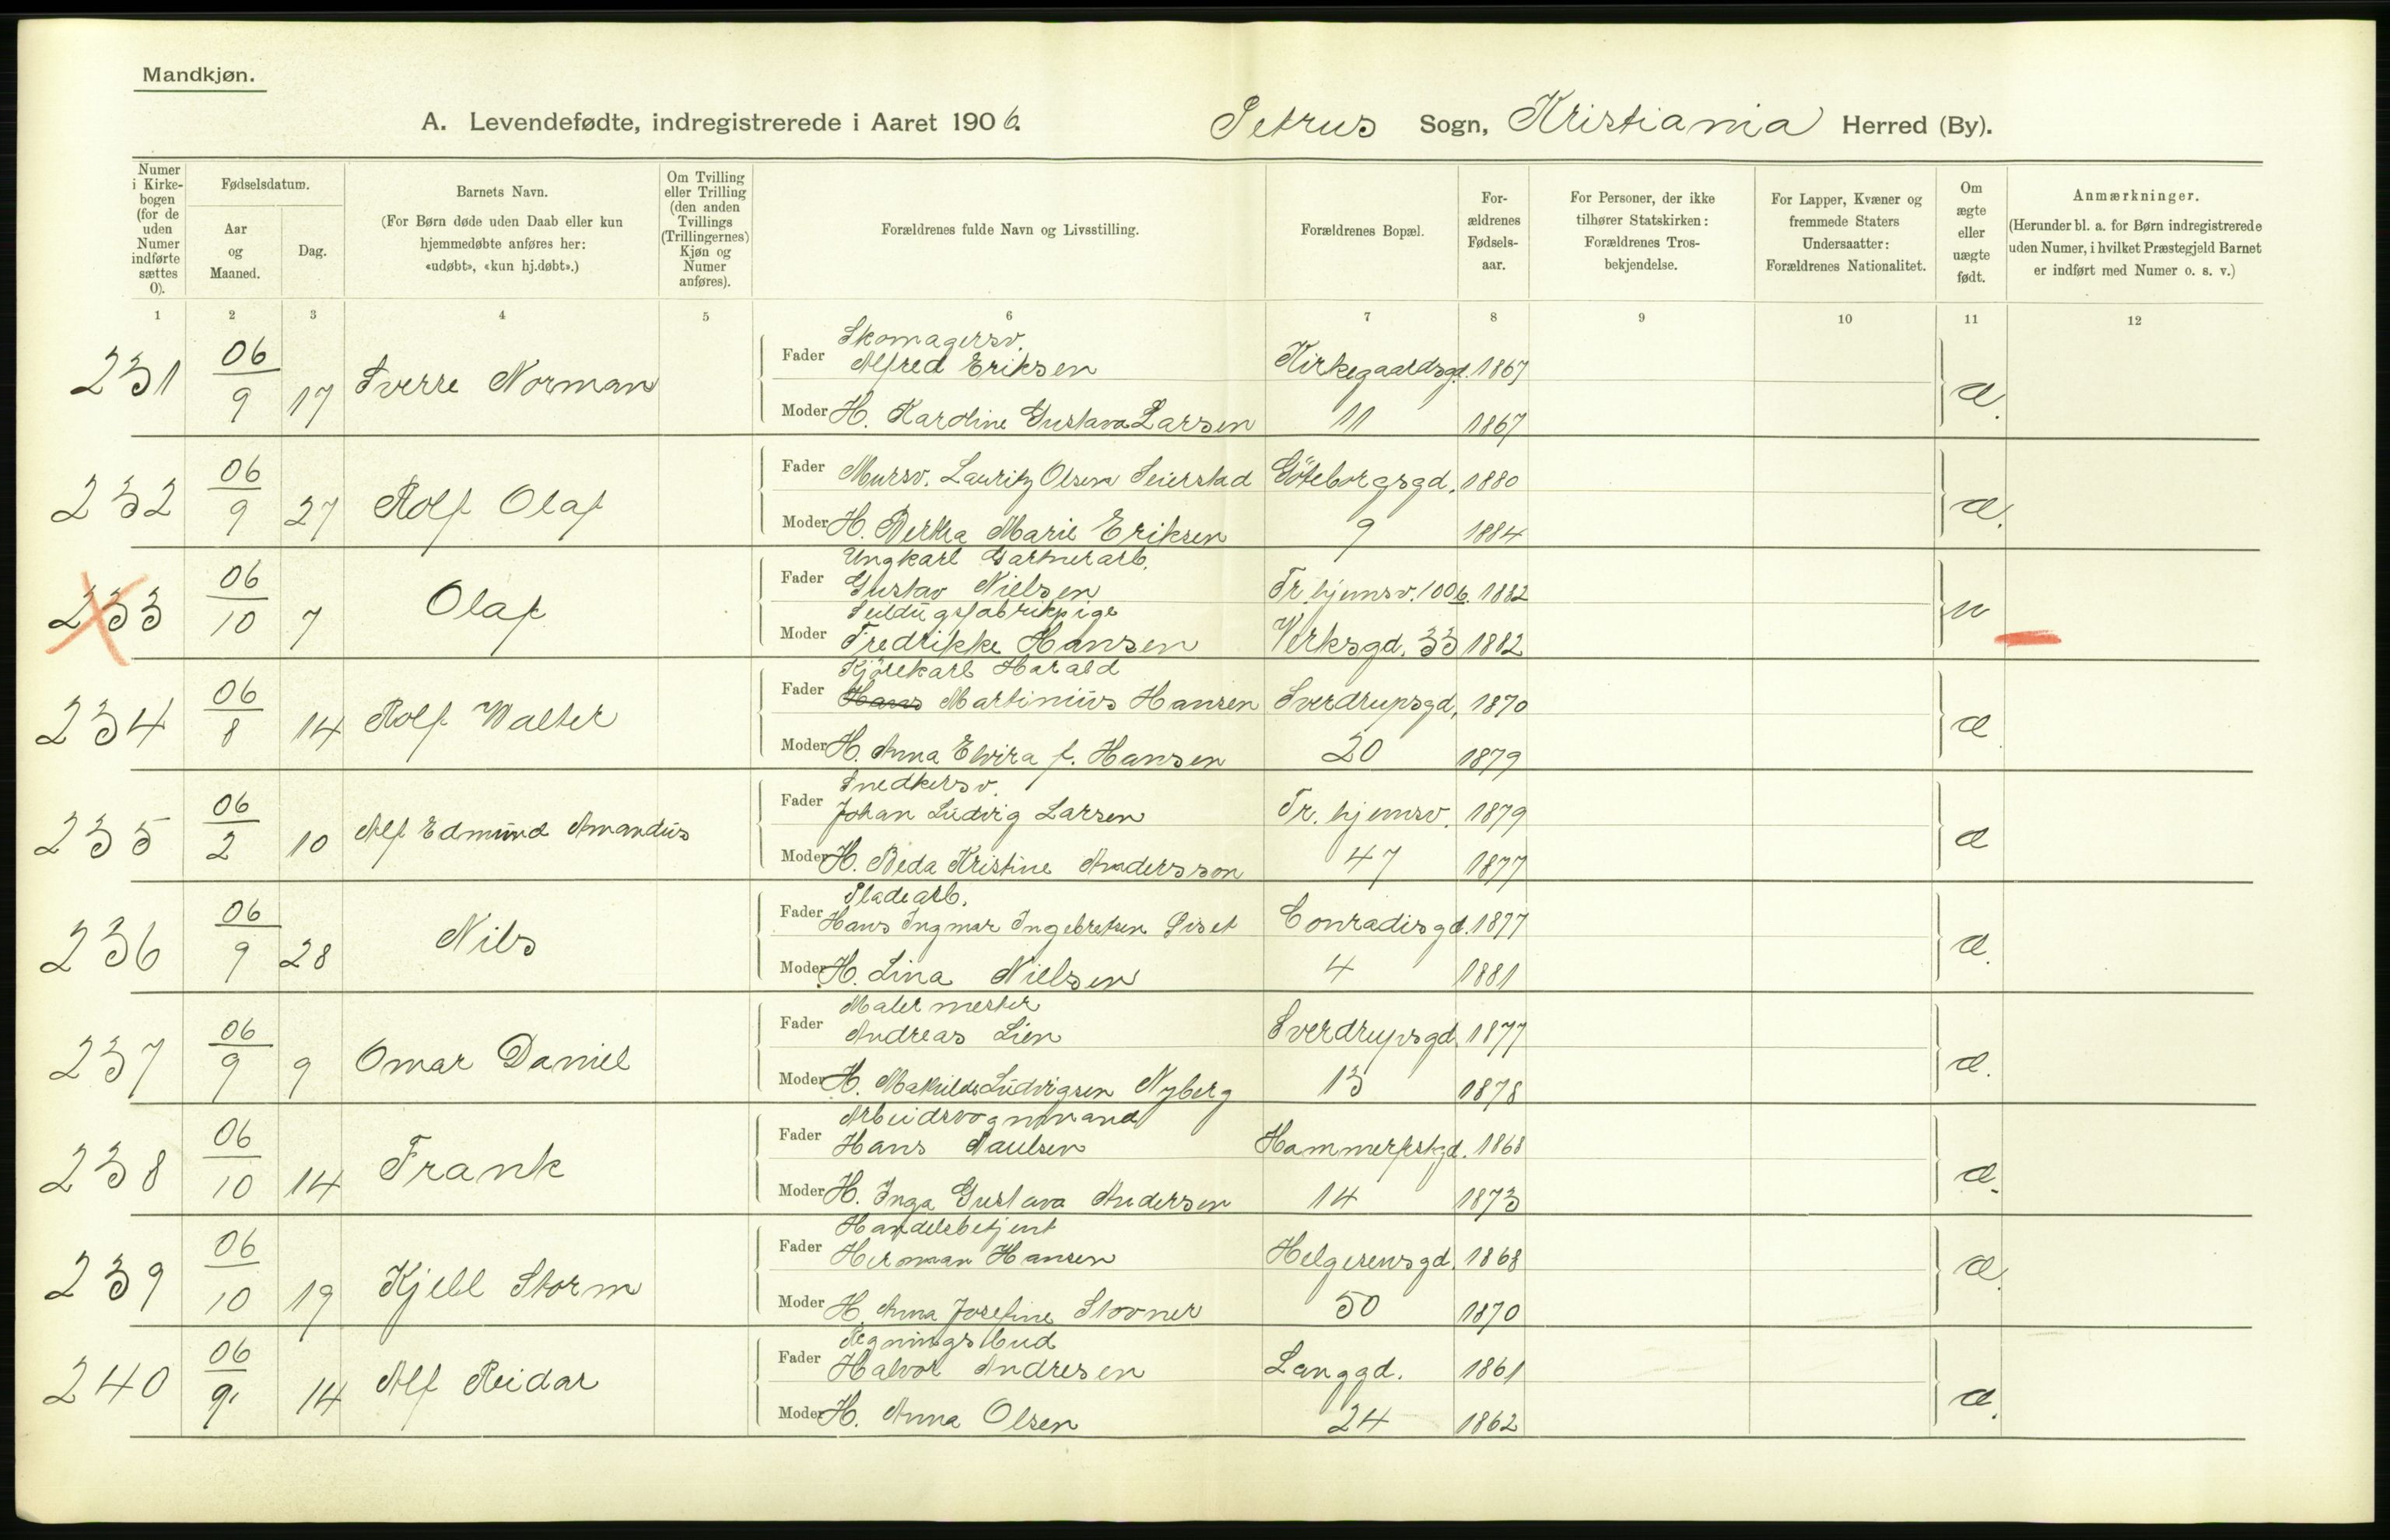 Mandkjøn.
A. Levendefødte, indregistrerede i Aaret 1906. Petrus Sogn, Kristiania Herred (By).
Numer i Kirkebogen (for de uden Numer indførte sættes 0).
Fødselsdatum.
Aar og Maaned.
Dag.
Barnets Navn.
(For Børn døde uden Daab eller kun hjemmedøbte anføres her: «udøbt», «kun hj.døbt».)
Om Tvilling eller Trilling (den anden Tvillings (Trillingernes) Kjøn og Numer anføres).
Forældrenes fulde Navn og Livsstilling.
Forældrenes Bopæl.
Forældrenes Fødselsaar.
For Personer, der ikke tilhører Statskirken: Forældrenes Trosbekjendelse.
For Lapper, Kvæner og fremmede Staters Undersaatter: Forældrenes Nationalitet.
Om ægte eller uægte født.
Anmærkninger.
(Herunder bl. a. for Børn indregistrerede uden Numer, i hvilket Præstegjeld Barnet er indført med Numer o. s. v.)
1 2 3 4 5 6 7 8 9 10 11 12
231 06/9 17 Sverre Norman
Fader Skomagersv. Alfred Eriksen Kirkegaardsgd. 1867
Moder H. Karoline Gustava Larsen 11 1867 æ.
232 06/9 27 Rolf Olaf
Fader Mursv. Lauritz Olsen Seierstad Göteborgsgd. 1880
Moder H. Bertha Marie Eriksen 9 1884 æ.
233 06/10 7 Olaf
Fader Ungkarl Gartnerarb. Gustav Nielsen Tr.hjemsv. 100b. 1882
Moder Seildugsfabrikpige Fredrikke Hansen Verksgd. 33 1882 u
234 06/8 14 Rolf Walter
Fader Kjörekarl Harald Hans Martinius Hansen Sverdrupsgd. 1870
Moder H. Anna Elvira f. Hansen 20 1879 æ
235 06/2 10 Alf Edmund Amandus
Fader Snedkersv. Johan Ludvig Larsen Tr.hjemsv. 1879
Moder H. Beda Kristine Andersson 47 1877 æ
236 06/9 28 Nils
Fader Pladearb. Hans Ingmar Ingebretsen Conradisgd. 1877
Moder H. Lina Nielsen 4 1881 æ.
237 06/9 9 Omar Daniel
Fader Malermester Andreas Lien Sverdrupsgd. 1877
Moder H. Mathilde Ludvigsen Nyberg 13 1878 æ.
238 06/10 14 Frank
Fader Arbeidsvognmand Hans Paulsen Hammerfstgd. 1868
Moder H. Inga Gustava Andersen 14 1873 æ.
239 06/10 19 Kjell Storm
Fader Handelsbetjent Herman Hansen Helgesensgd. 1868
Moder H. Anna Josefine Stovner 50 1870 æ.
240 06/9 14 Alf Reidar
Fader Regningsbud Halvor Andresen Langgd. 1861
Moder H. Anna Olsen 24 1862 æ.